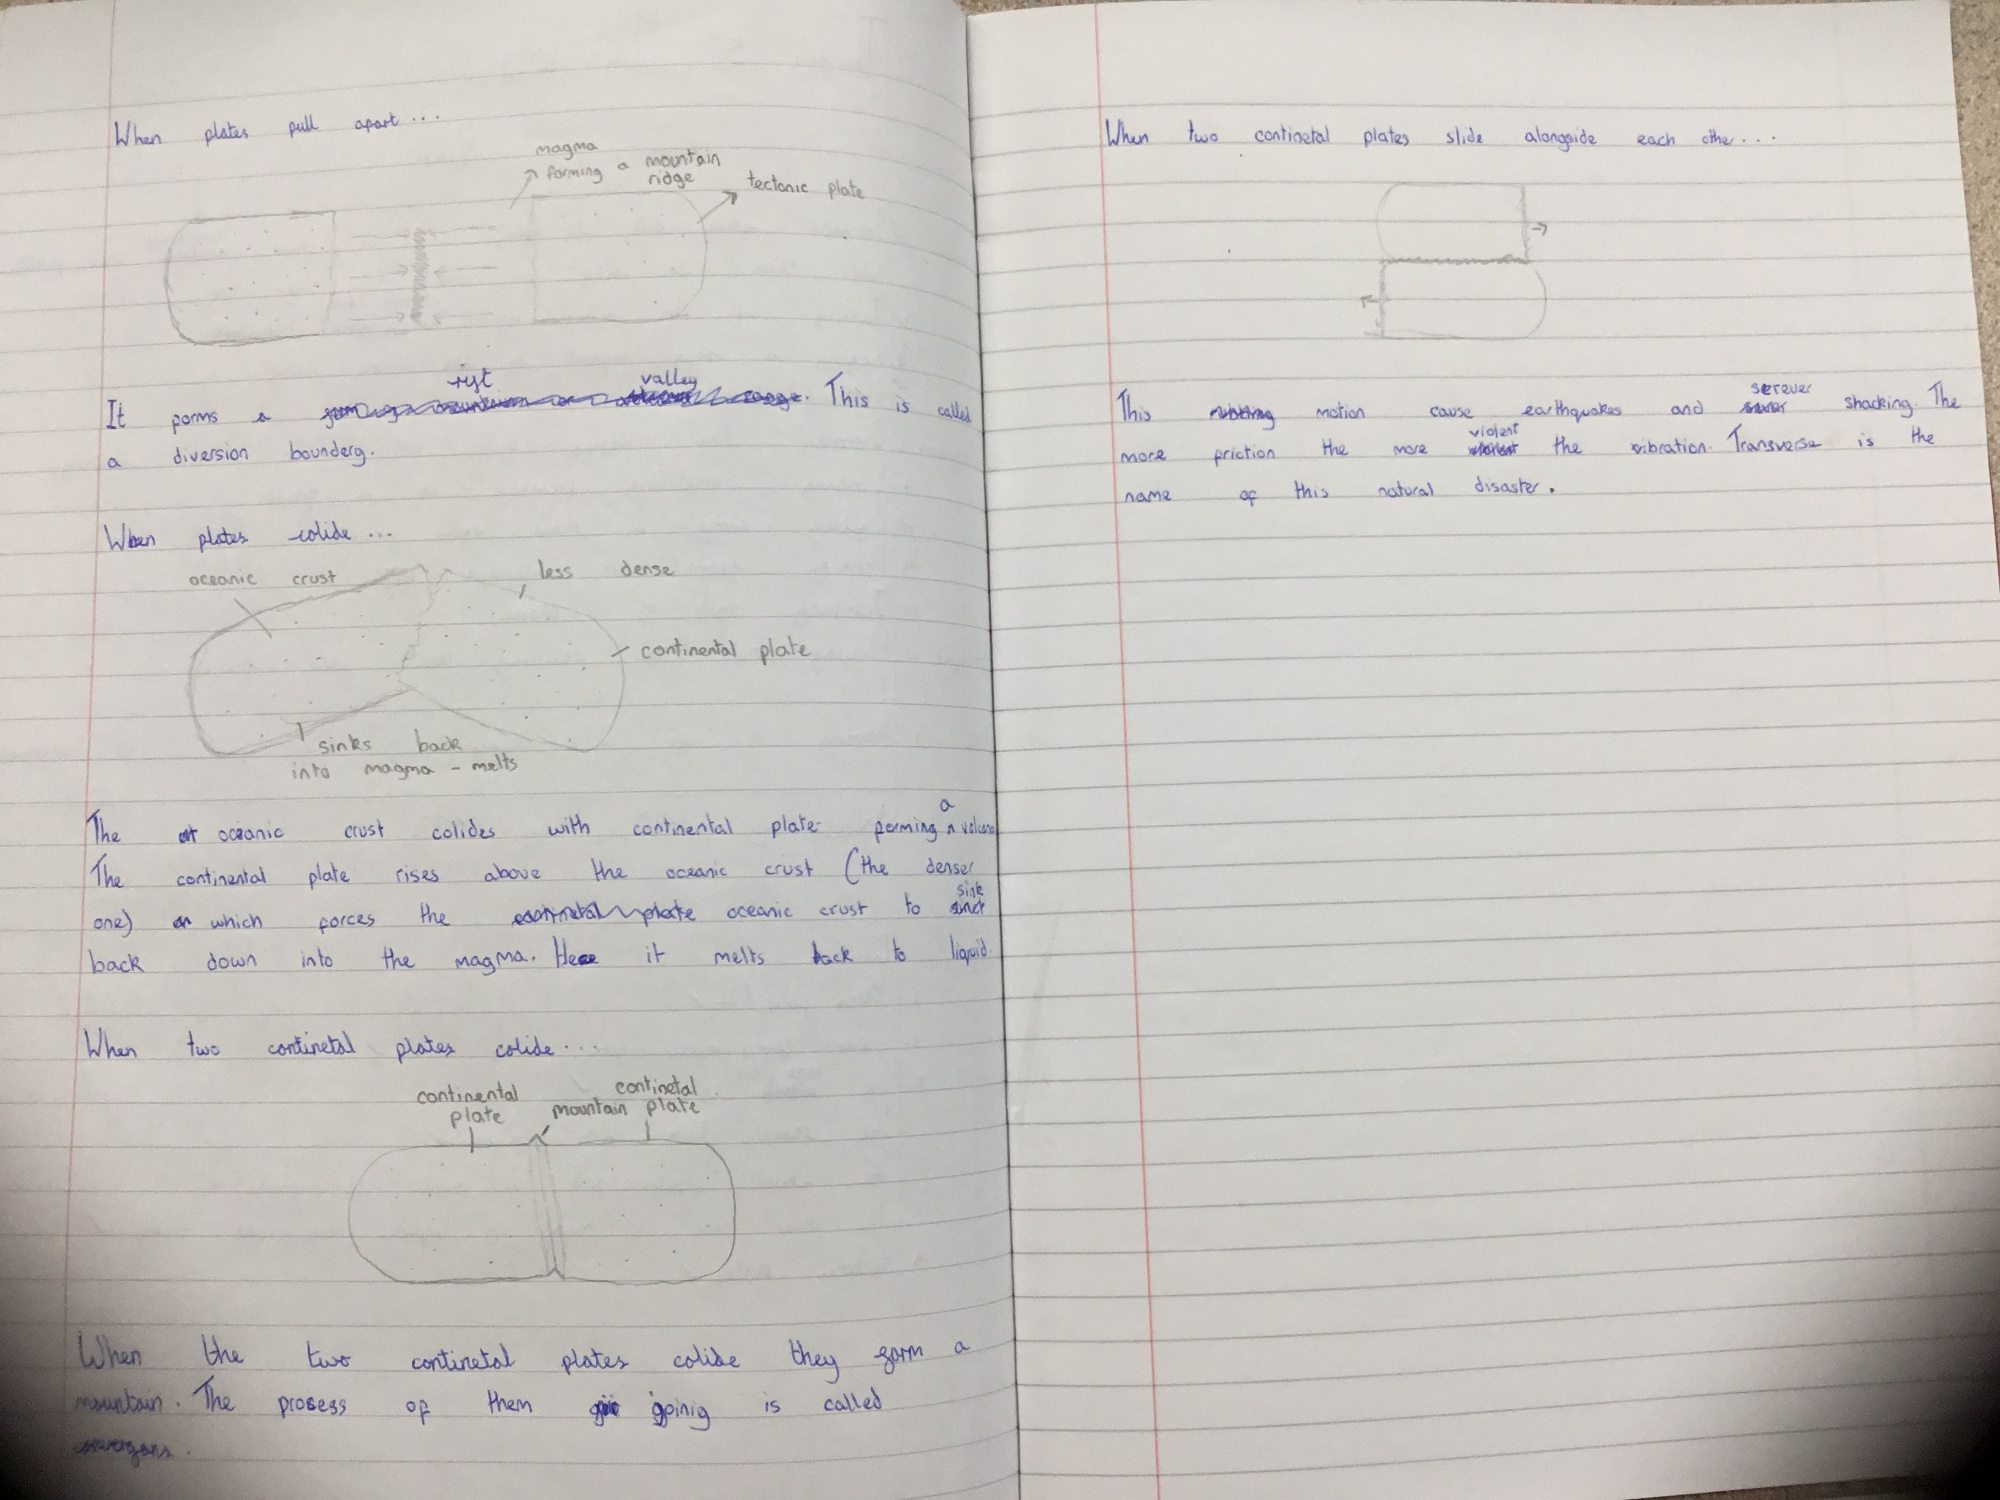 When plates pull apart...
magma
forming a mountain
ridge
tectonic plate
rift valley
It forms a . This is called
a diversion boundery.
When plates colide ...
oceanic crust
less dense
continental plate
sinks back
into magma - melts
a
The oceanic crust colides with continental plate forming volcano
The continental plate rises above the oceanic crust (the denser
sink
one) which forces the continetal plate oceanic crust to
back down into the magma. Here it melts back to liquid
When two continetal plates colide...
continental
plate
mountain
continetal
plate
When the two continetal plates colide they form a
mountain. The prosess of them goinig is called
convergans.
When two continetal plates slide alongside each other...
serever
This rubbing motion cause earthquakes and shacking. The
violent
more friction the more the vibration. Transverse is the
name of this natural disaster.